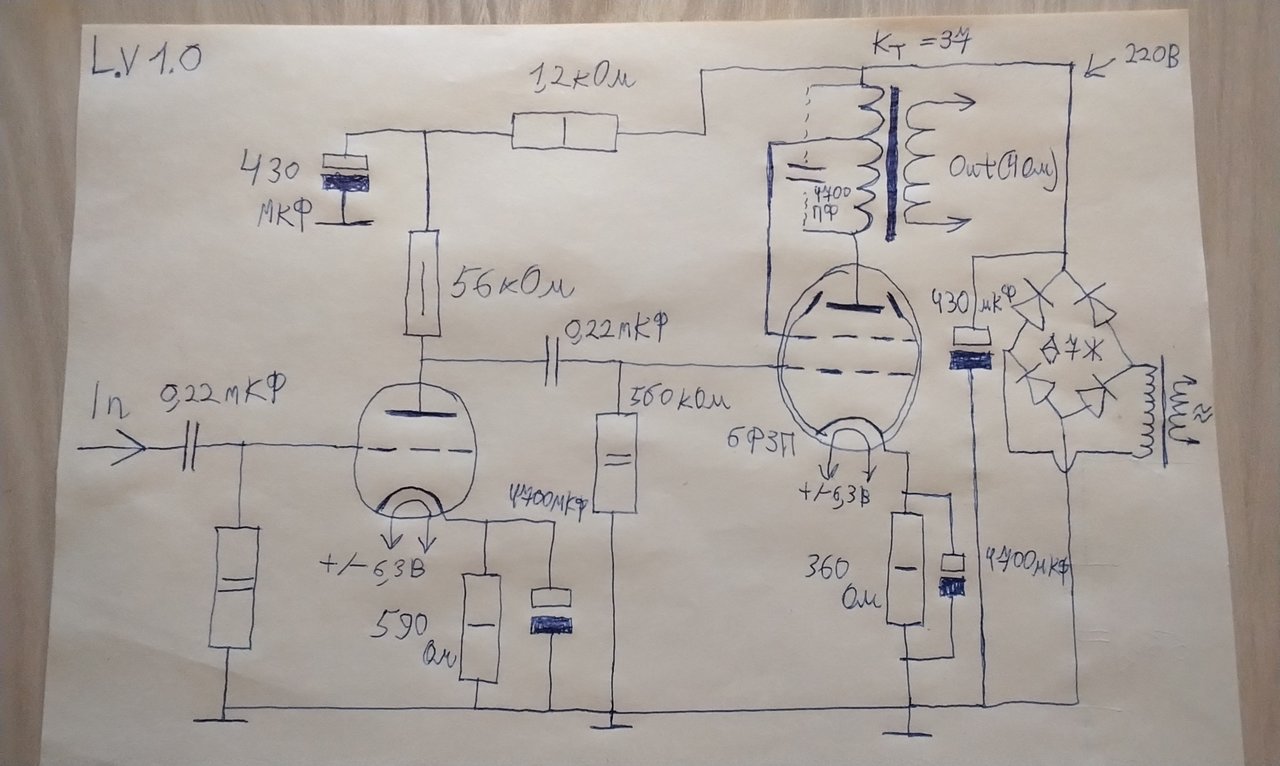 L.V 1.0
Kт = 37
220В
1,2кОм
430
мкФ
4700
ПФ
Out(4Ом)
56кОм
0,22мкФ
430 мкФ
Д7Ж
In
0,22мкФ
560кОм
6Ф3П
4700мкФ
+/-6,3В
+/-6,3В
590
Ом
360
Ом
4700мкФ